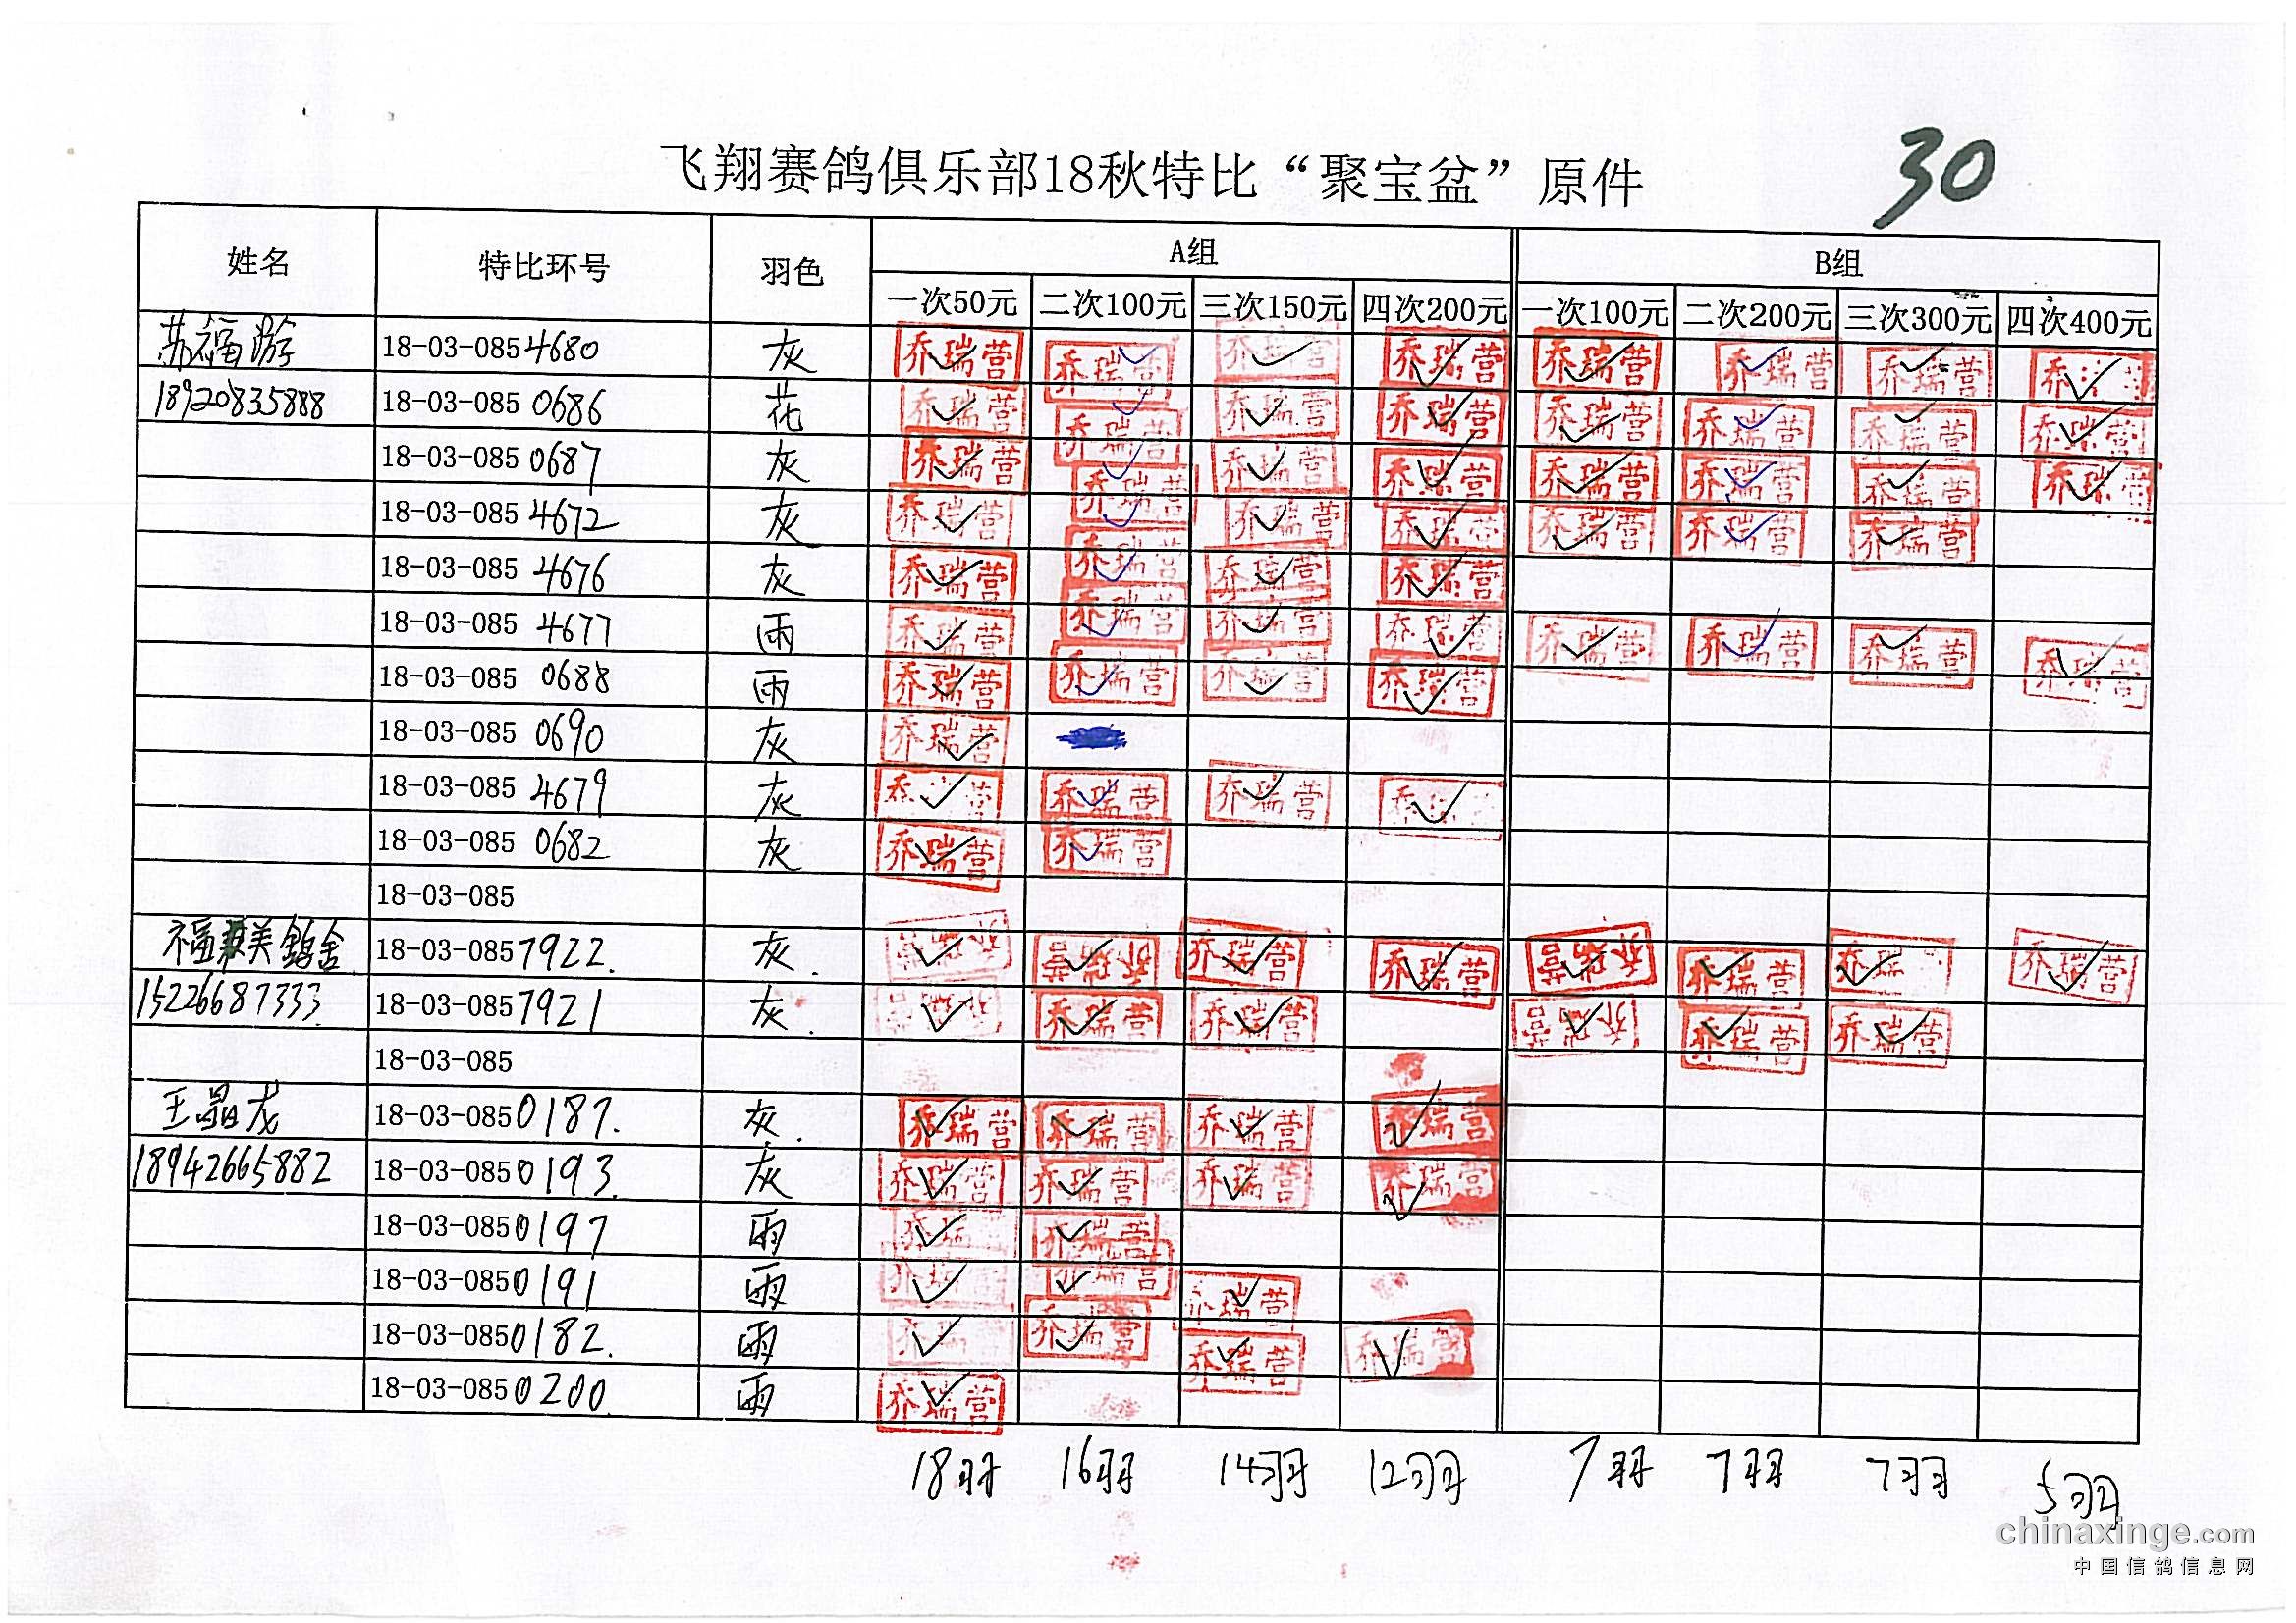 飞翔赛鸽俱乐部18秋特比“聚宝盆”原件
30
姓名 特比环号 羽色 A组 B组
一次50元 二次100元 三次150元 四次200元 一次100元 二次200元 三次300元 四次400元
苏福游 18-03-0854680 灰 乔瑞营 乔瑞营 乔瑞营 乔瑞营 乔瑞营 乔瑞营 乔瑞营 乔
18920835888 18-03-085 0686 花 乔瑞营 乔瑞营 乔瑞营 乔瑞营 乔瑞营 乔瑞营 乔瑞营 乔瑞营
18-03-085 0687 灰 乔瑞营 乔瑞营 乔瑞营 乔瑞营 乔瑞营 乔瑞营 乔瑞营 乔瑞营
18-03-085 4672 灰 乔瑞营 乔瑞营 乔瑞营 乔瑞营 乔瑞营 乔瑞营 乔瑞营
18-03-085 4676 灰 乔瑞营 乔瑞营 乔瑞营 乔瑞营
18-03-085 4677 雨 乔瑞营 乔瑞营 乔瑞营 乔瑞营 乔瑞营 乔瑞营 乔瑞营 乔瑞营
18-03-085 0688 雨 乔瑞营 乔瑞营 乔瑞营 乔瑞营
18-03-085 0690 灰 乔瑞营
18-03-085 4679 灰 乔瑞营 乔瑞营 乔瑞营 乔
18-03-085 0682 灰 乔瑞营 乔瑞营
18-03-085
福 美鸽舍 18-03-0857922. 灰. 乔瑞营 乔瑞营 乔瑞营 乔瑞营 乔瑞营 乔瑞营 乔瑞 乔瑞营
15226687333. 18-03-0857921 灰. 乔瑞营 乔瑞营 乔瑞营 乔瑞营 乔瑞营 乔瑞营
18-03-085
王晶龙 18-03-0850187. 灰. 乔瑞营 乔瑞营 乔瑞营 乔瑞营
18942665882 18-03-0850193. 灰 乔瑞营 乔瑞营 乔瑞营 乔瑞营
18-03-0850197 雨 乔瑞 乔瑞营
18-03-0850191 雨 乔瑞营 乔瑞营 乔瑞营
18-03-0850182. 雨 乔瑞营 乔瑞营 乔瑞营 乔瑞营
18-03-0850200. 雨 乔瑞营
18羽 16羽 14羽 12羽 7羽 7羽 7羽 5羽
chinaxinge.com
中国信鸽信息网